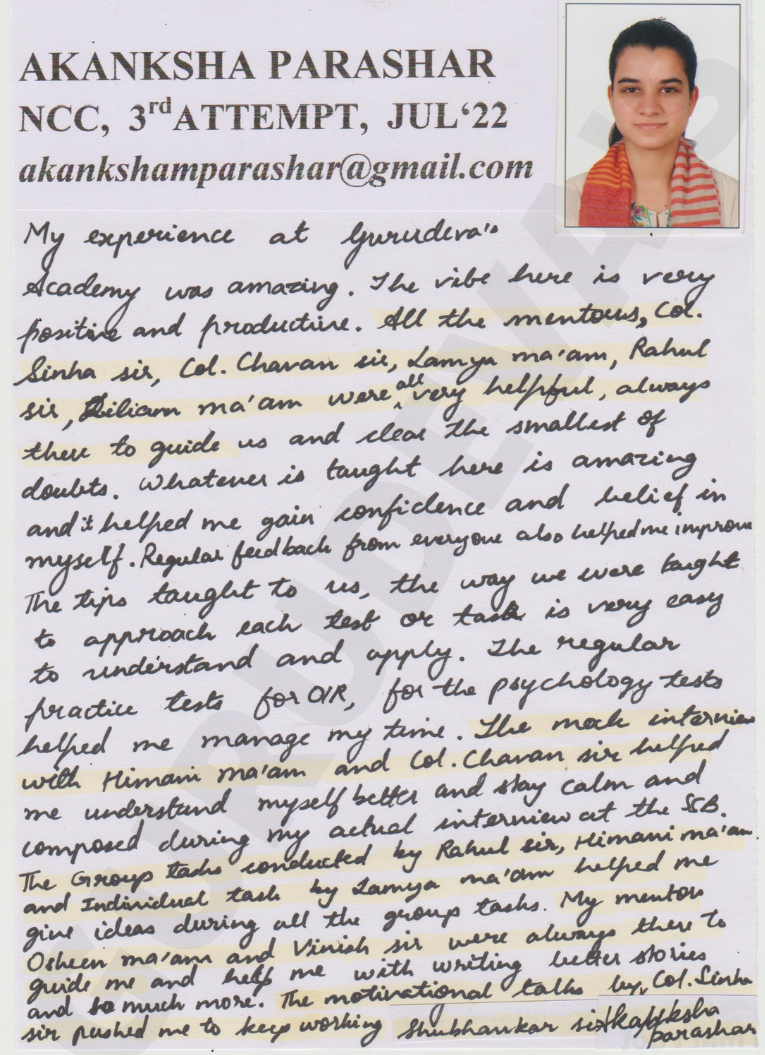 AKANKSHA PARASHAR
NCC, 3rd ATTEMPT, JUL'22
akankshamparashar@gmail.com
My experience at Gurudeva's
Academy was amazing. The vibe here is very
positive and productive. All the mentours, Col.
Sinha sir, Col. Chavan sir, Lamya ma'am, Rahul
sir, Liliam ma'am were all very helpful, always
there to guide us and clear the smallest of
doubts. Whatever is taught here is amazing
and it helped me gain confidence and belief in
myself. Regular feedback from everyone also helped me improve
The tips taught to us, the way we were taught
to approach each test or task is very easy
to understand and apply. The regular
practice tests for OIR, for the psychology tests
helped me manage my time. The mock interview
with Himani ma'am and Col. Chavan sir helped
me understand myself better and stay calm and
composed during my actual interview at the SSB.
The Group tasks conducted by Rahul sir, Himani ma'am
and Individual task by Lamya ma'am helped me
give ideas during all the group tasks. My mentors
Osheen ma'am and Vinish sir were always there to
guide me and help me with writing better stories
and so much more. The motivational talks by, Col. Sinha
sir pushed me to keep working Shubhankar sir Akanksha
Parashar
GURUDEVAS